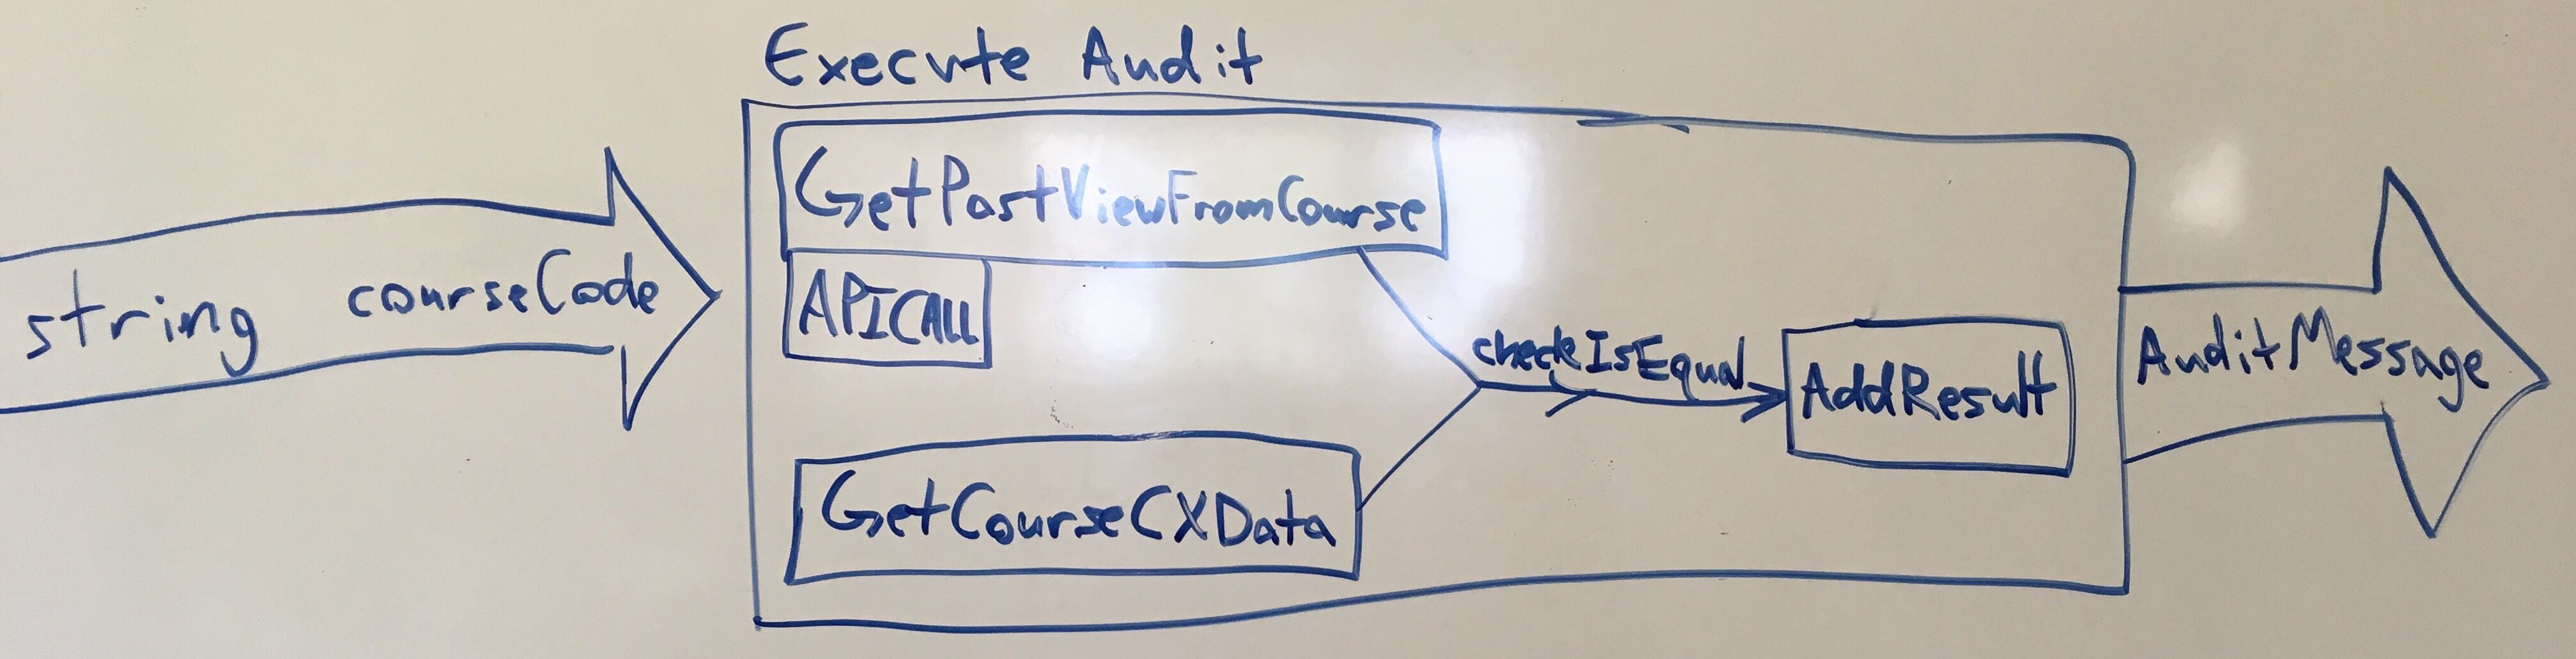 Execute Audit
string courseCode
GetPastViewFromCourse
APICALL
GetCourseCXData
checkIsEqual
AddResult
AuditMessage